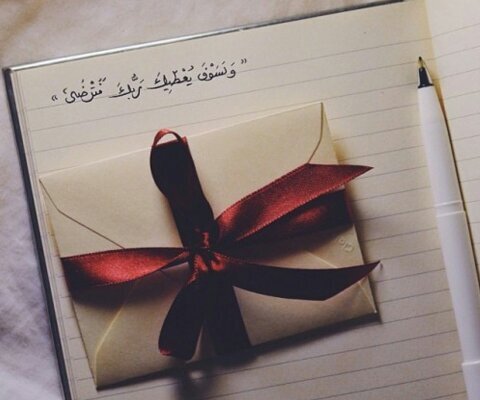 "وَلَسَوْفَ يُعْطِيكَ رَبُّكَ فَتَرْضَى"